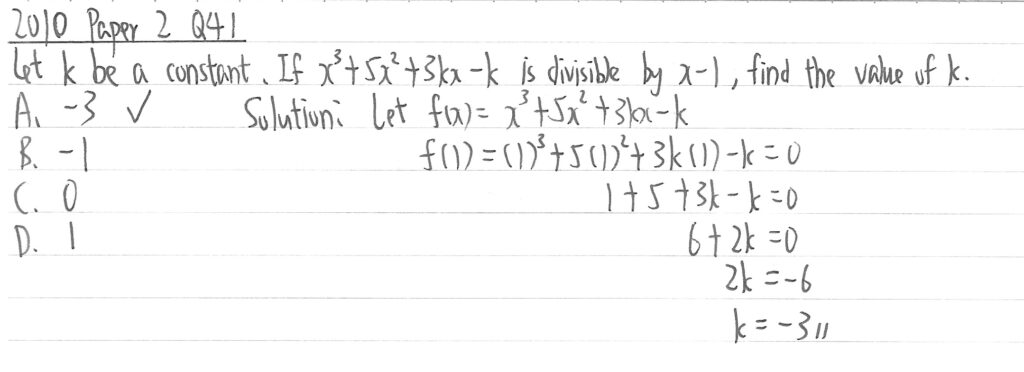 2010 Paper 2 Q41
Let k be a constant. If x³+5x²+3kx-k is divisible by x-1, find the value of k.
A. -3 ✓ Solution: Let f(x)= x³+5x²+3kx-k
B. -1 f(1)=(1)³+5(1)²+3k(1)-k=0
C. 0 1+5+3k-k=0
D. 1 6+2k=0
2k=-6
k=-3//